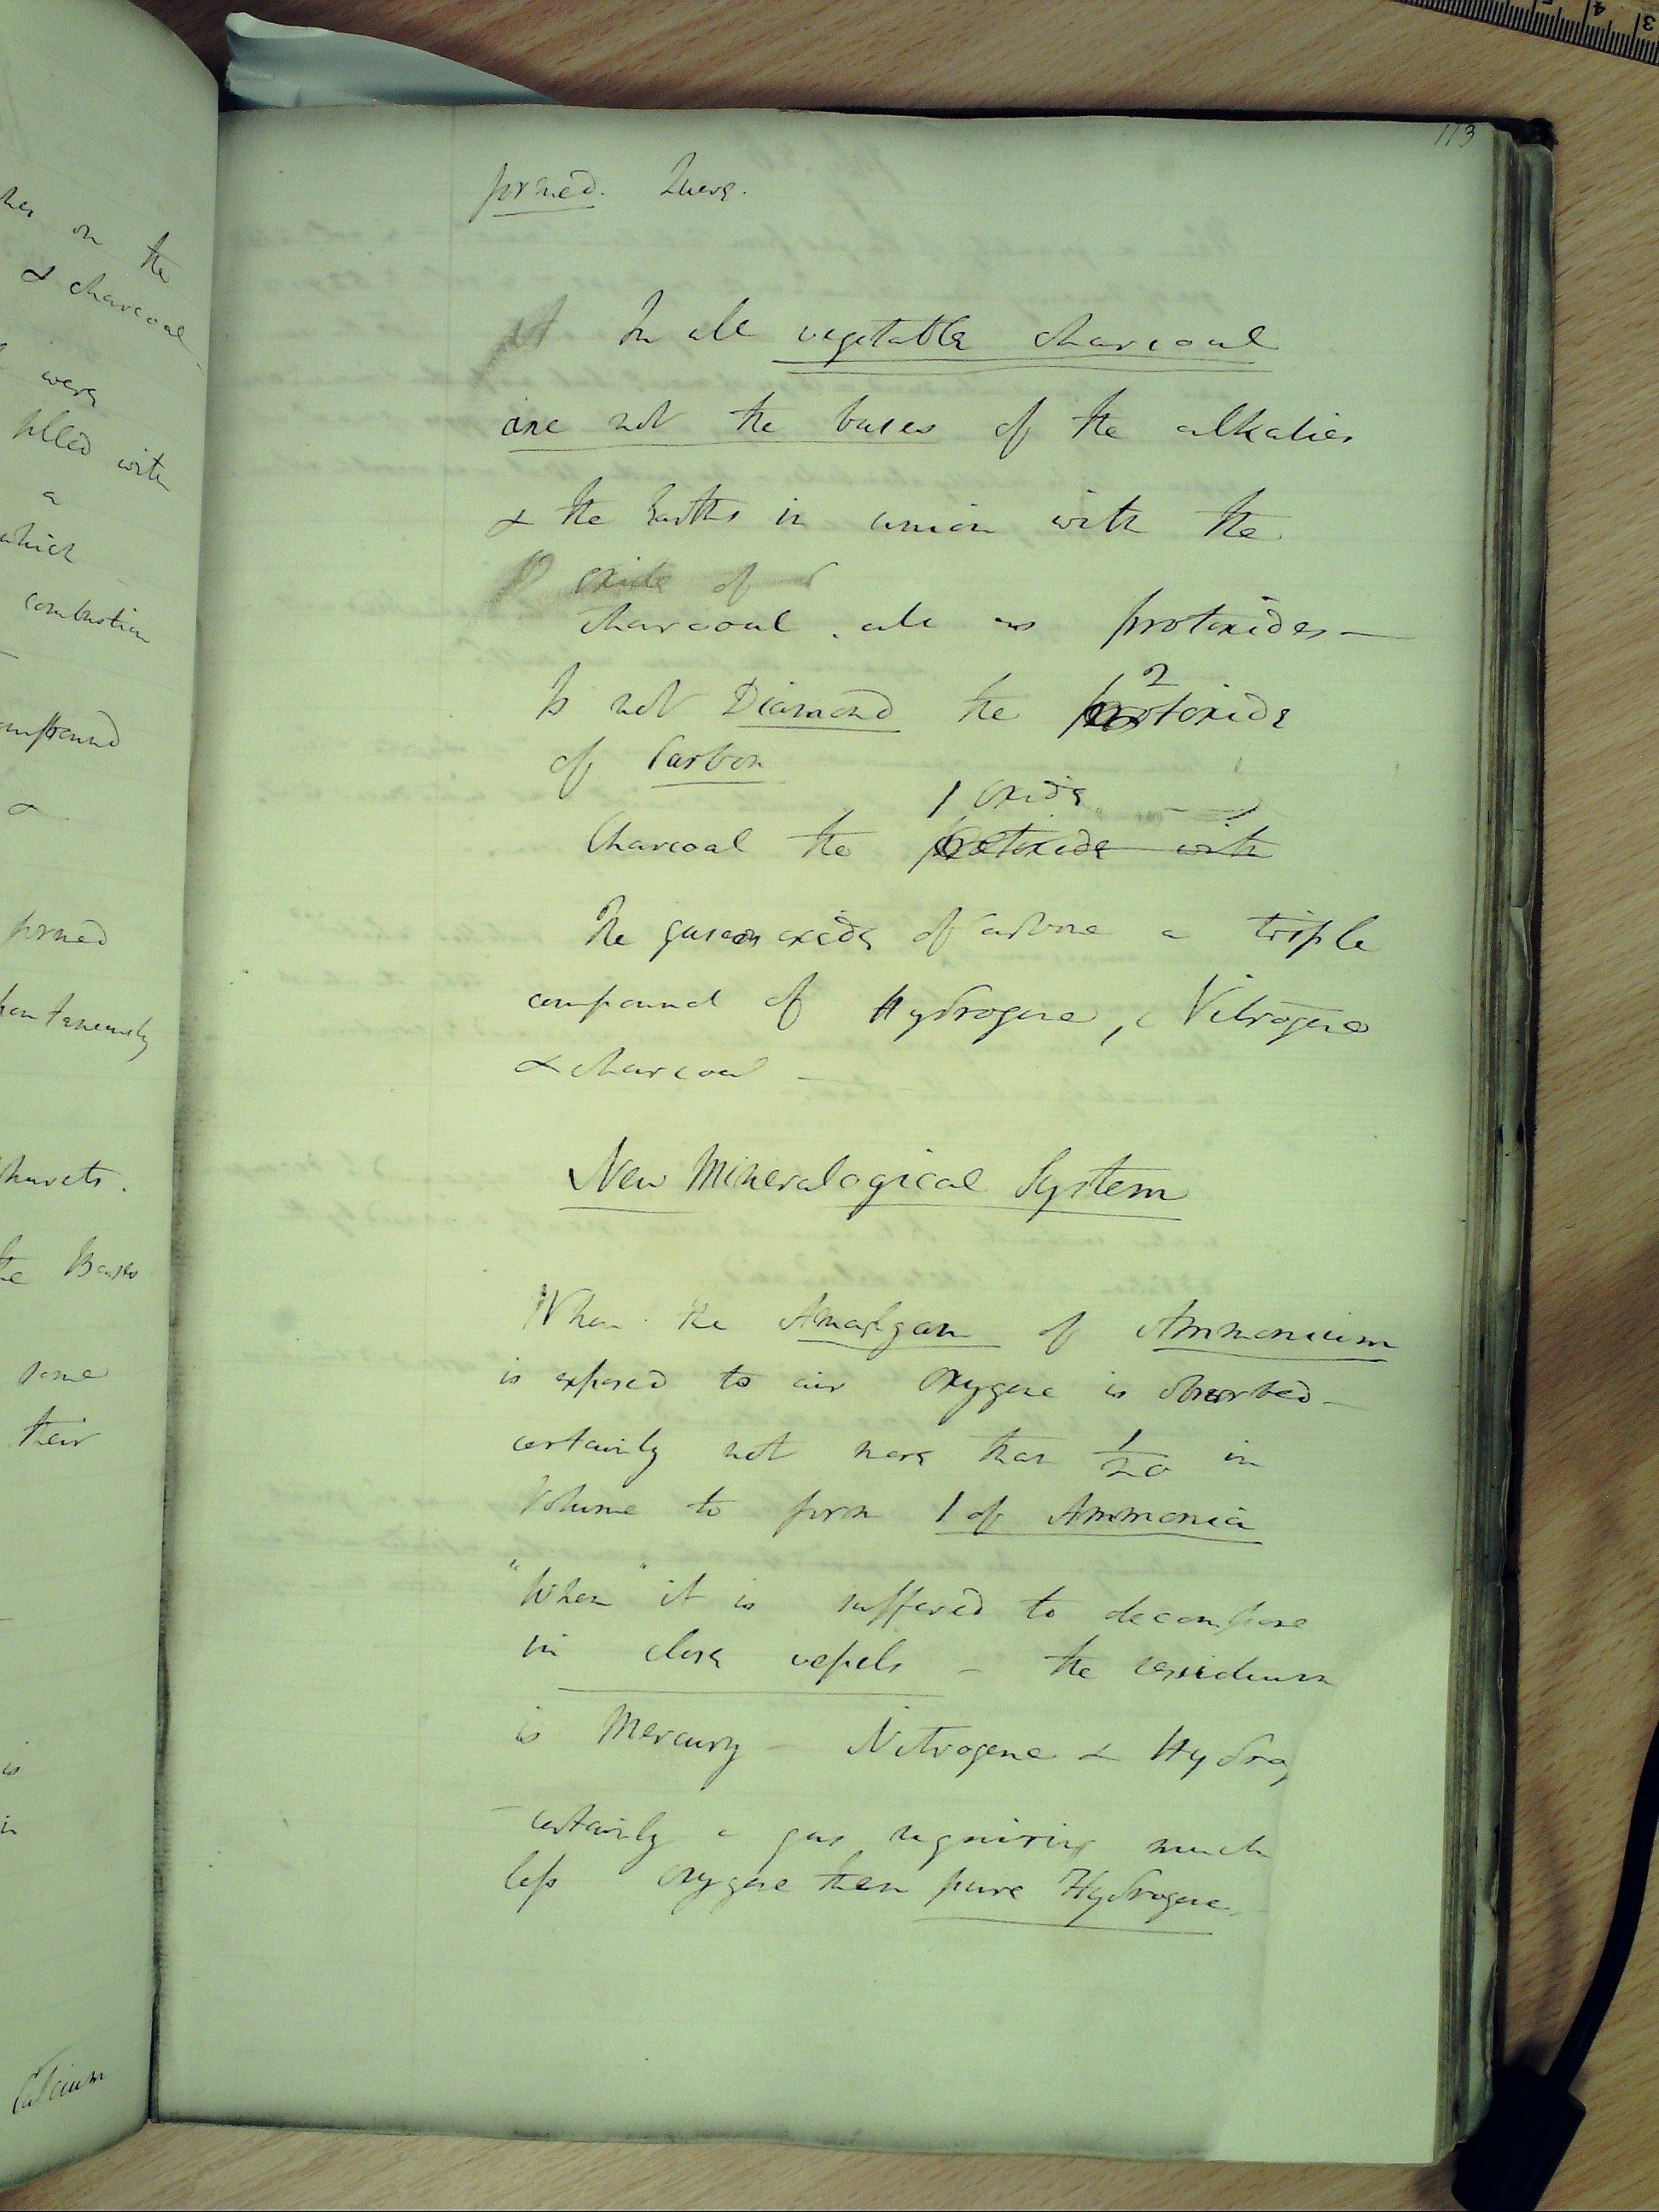 her on the
& charcoal
were
filled with
a
which
combustion
formed
the Bases
some
their
is
in
Calcium
113
formed. Quere.
In all vegetable charcoal
are not the bases of the alkalies
& the Earths in union with the
oxide of
charcoal. all as protoxides —
2
Is not Diamond the protoxide
of Carbon
1 oxide
Charcoal the protoxide with
The gaseous oxide of Carbone a triple
compound of Hydrogene, Nitrogene
& charcoal —
New Mineralogical System
When the Amalgam of Ammonium
is exposed to air oxygene is absorbed —
certainly not more than 1/20 in
Volume to form 1 of Ammonia
"When" it is suffered to decompose
in close vessels – the residuum
is Mercury – Nitrogene & Hydrog
– certainly a gas requiring much
less oxygene then pure Hydrogene.